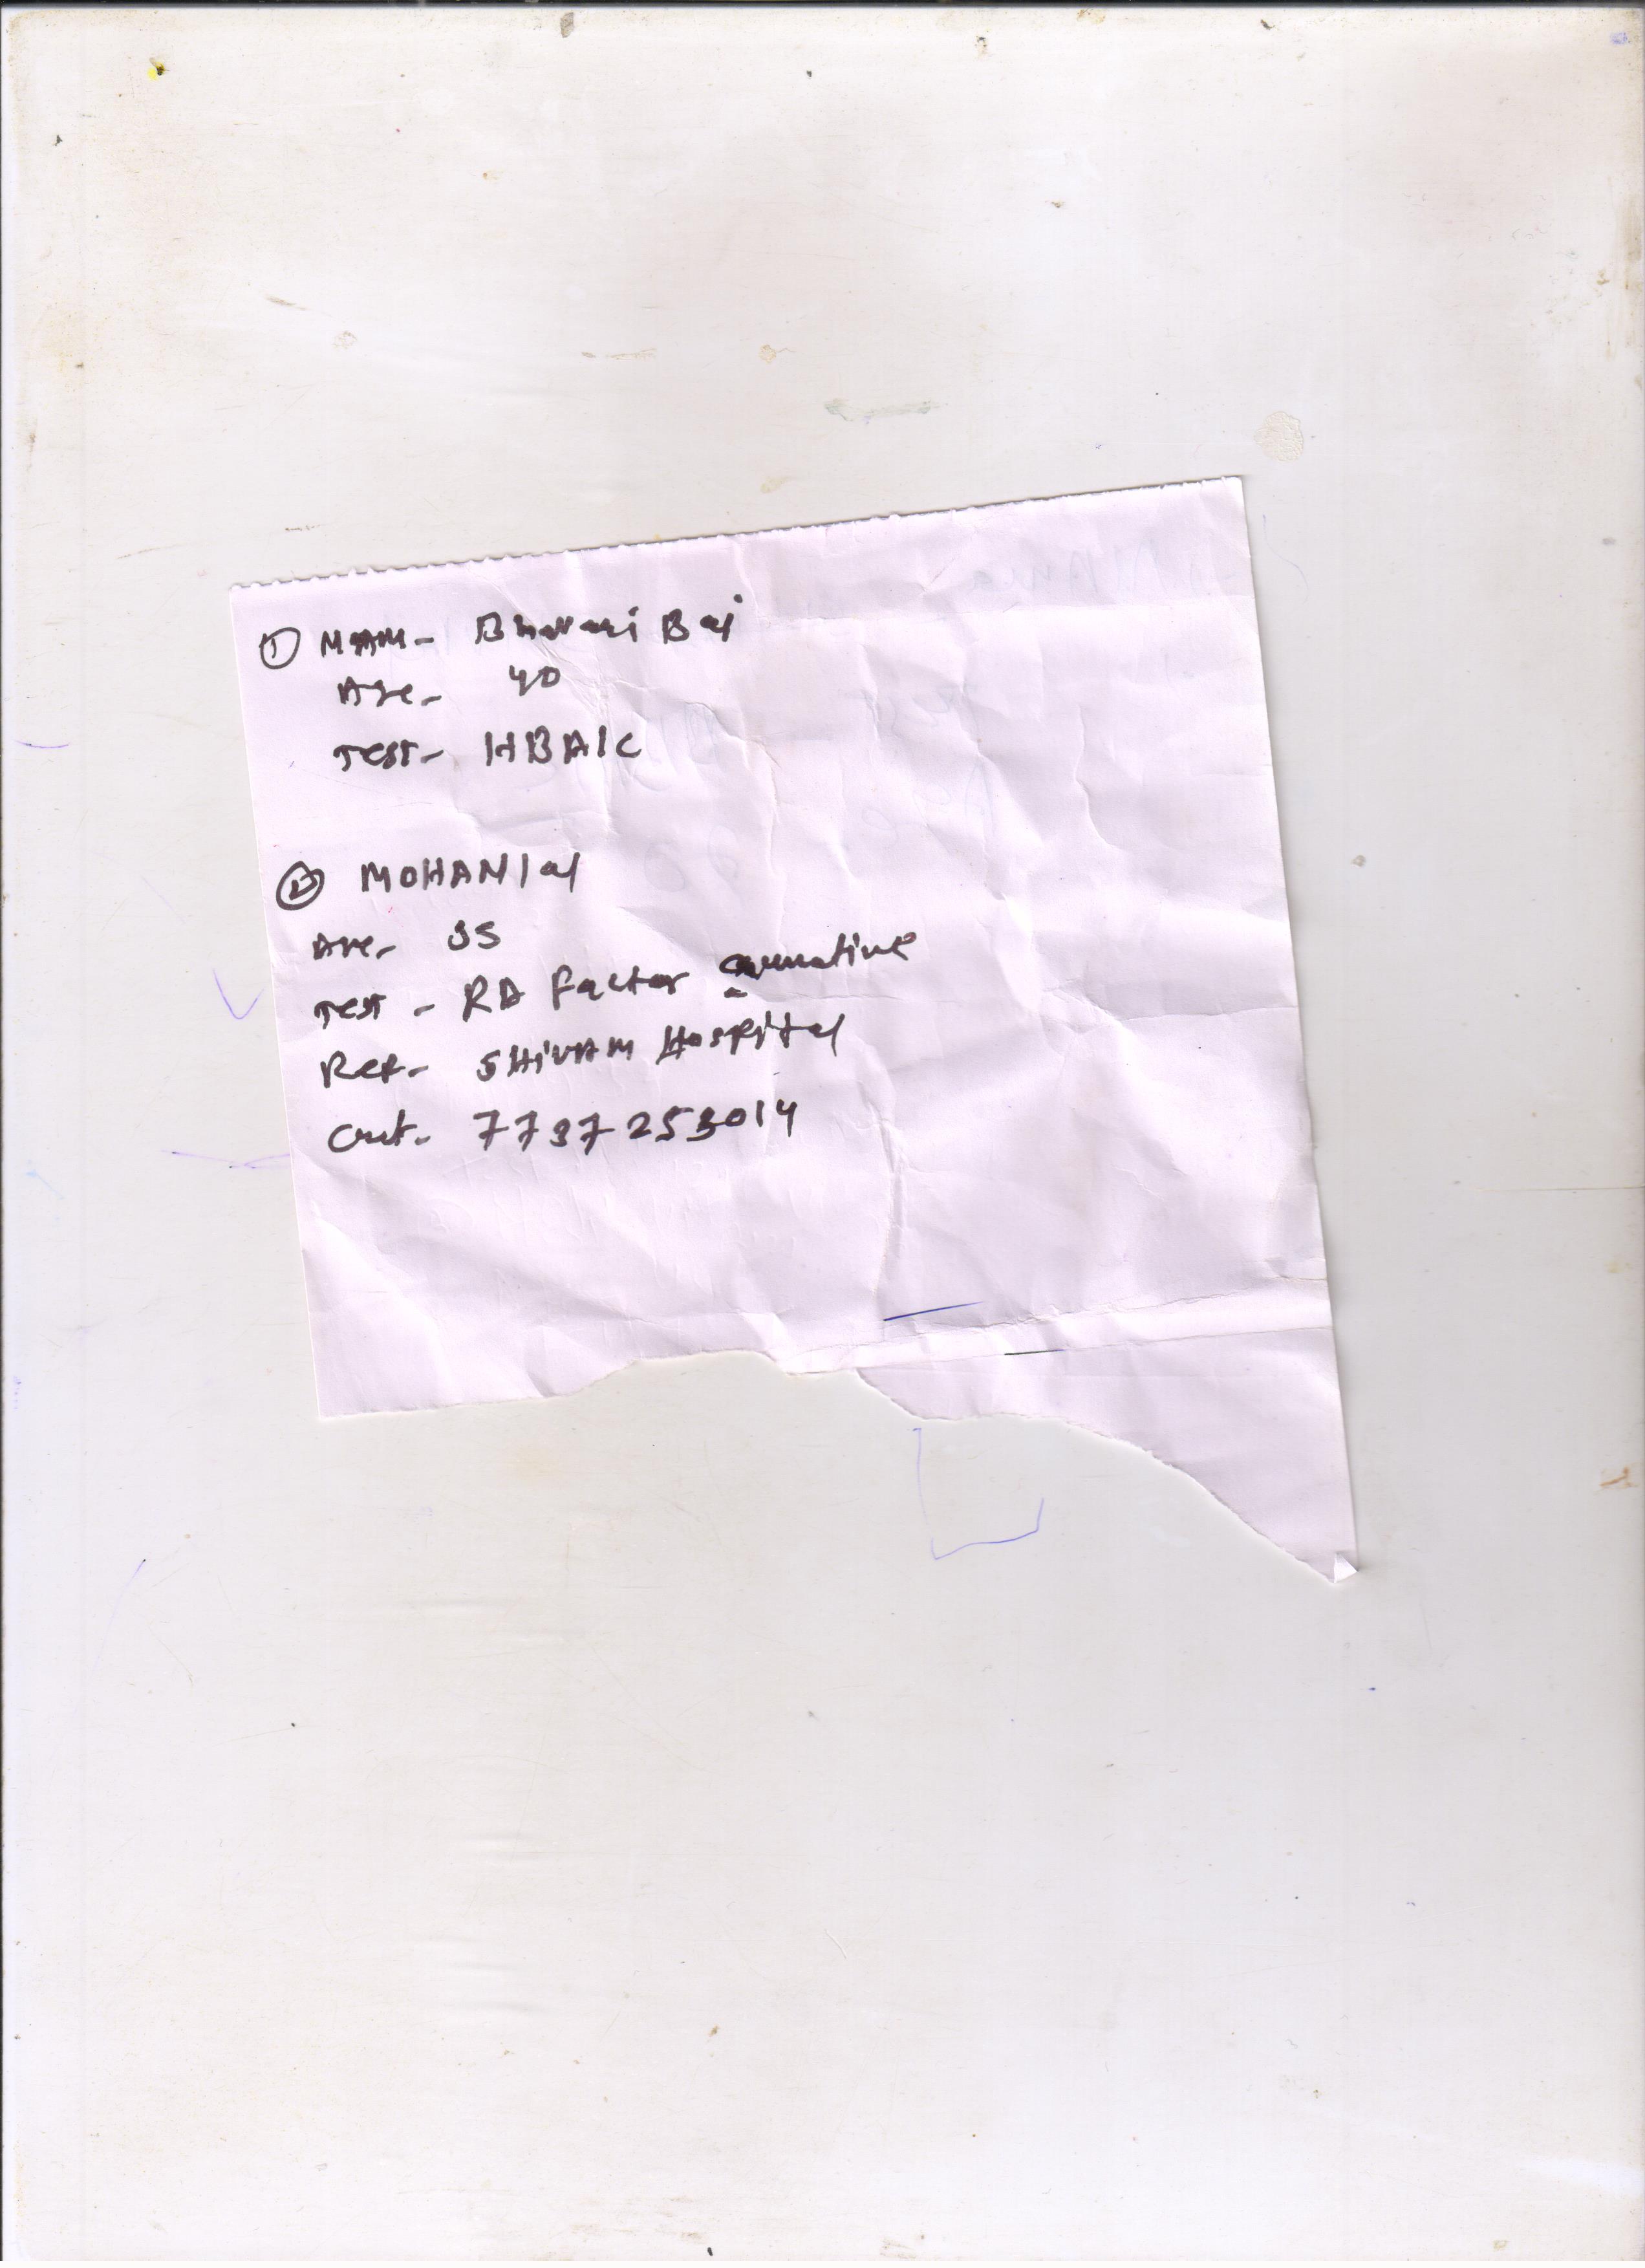 ① NAM- Bhavari Bai
Age- 40
Test- HBA1C
② MOHANlal
Age- 35
Test - RA Factor
Ref- SHIVAM Hospital
Cont- 7737253014